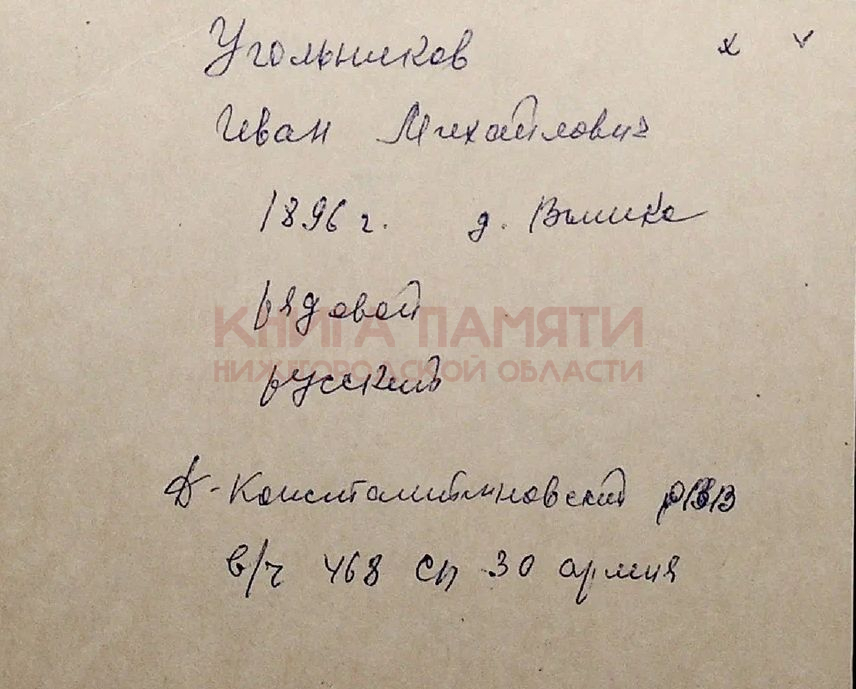 Угольников х v
Иван Михайлович
1896 г. д.
рядовой
КНИГА ПАМЯТИ
НИЖЕГОРОДСКОЙ ОБЛАСТИ
русский
Д-Константиновский РВВ
в/ч 468 сп 30 армия